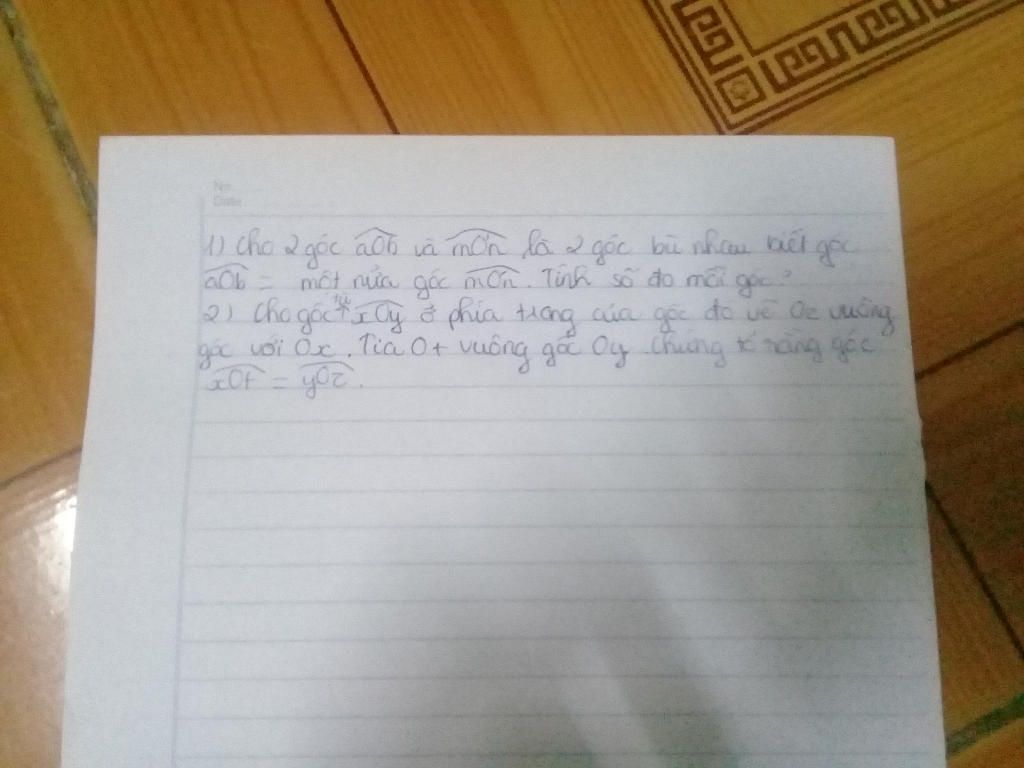 No.
Date
1) Cho 2 góc aOb và mOn là 2 góc bù nhau biết góc
aOb = một nửa góc mOn. Tính số đo mỗi góc?
2) Cho góc tù xOy ở phía trong của góc đó vẽ Oz vuông
góc với Ox. Tia Ot vuông góc Oy. Chứng tỏ rằng góc
xOt = yOz.